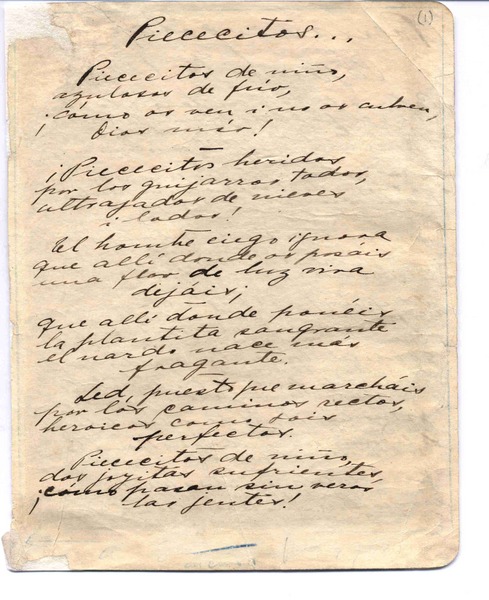 (1)
Piececitos...
Piececitos de niño,
azulosos de frío,
¡cómo os ven i no os cubren,
Dios mío!
¡Piececitos heridos
por los guijarros todos,
ultrajados de nieves
i lodos!
El hombre ciego ignora
que allí donde os posáis
una flor de luz viva
dejáis;
que allí donde ponéis
la plantita sangrante
el nardo nace más
fragante.
Sed, puesto que marcháis
por los caminos rectos,
heroicos como sois
perfectos.
Piececitos de niño,
dos joyitas sufrientes,
¡cómo pasan sin veros
las jentes!